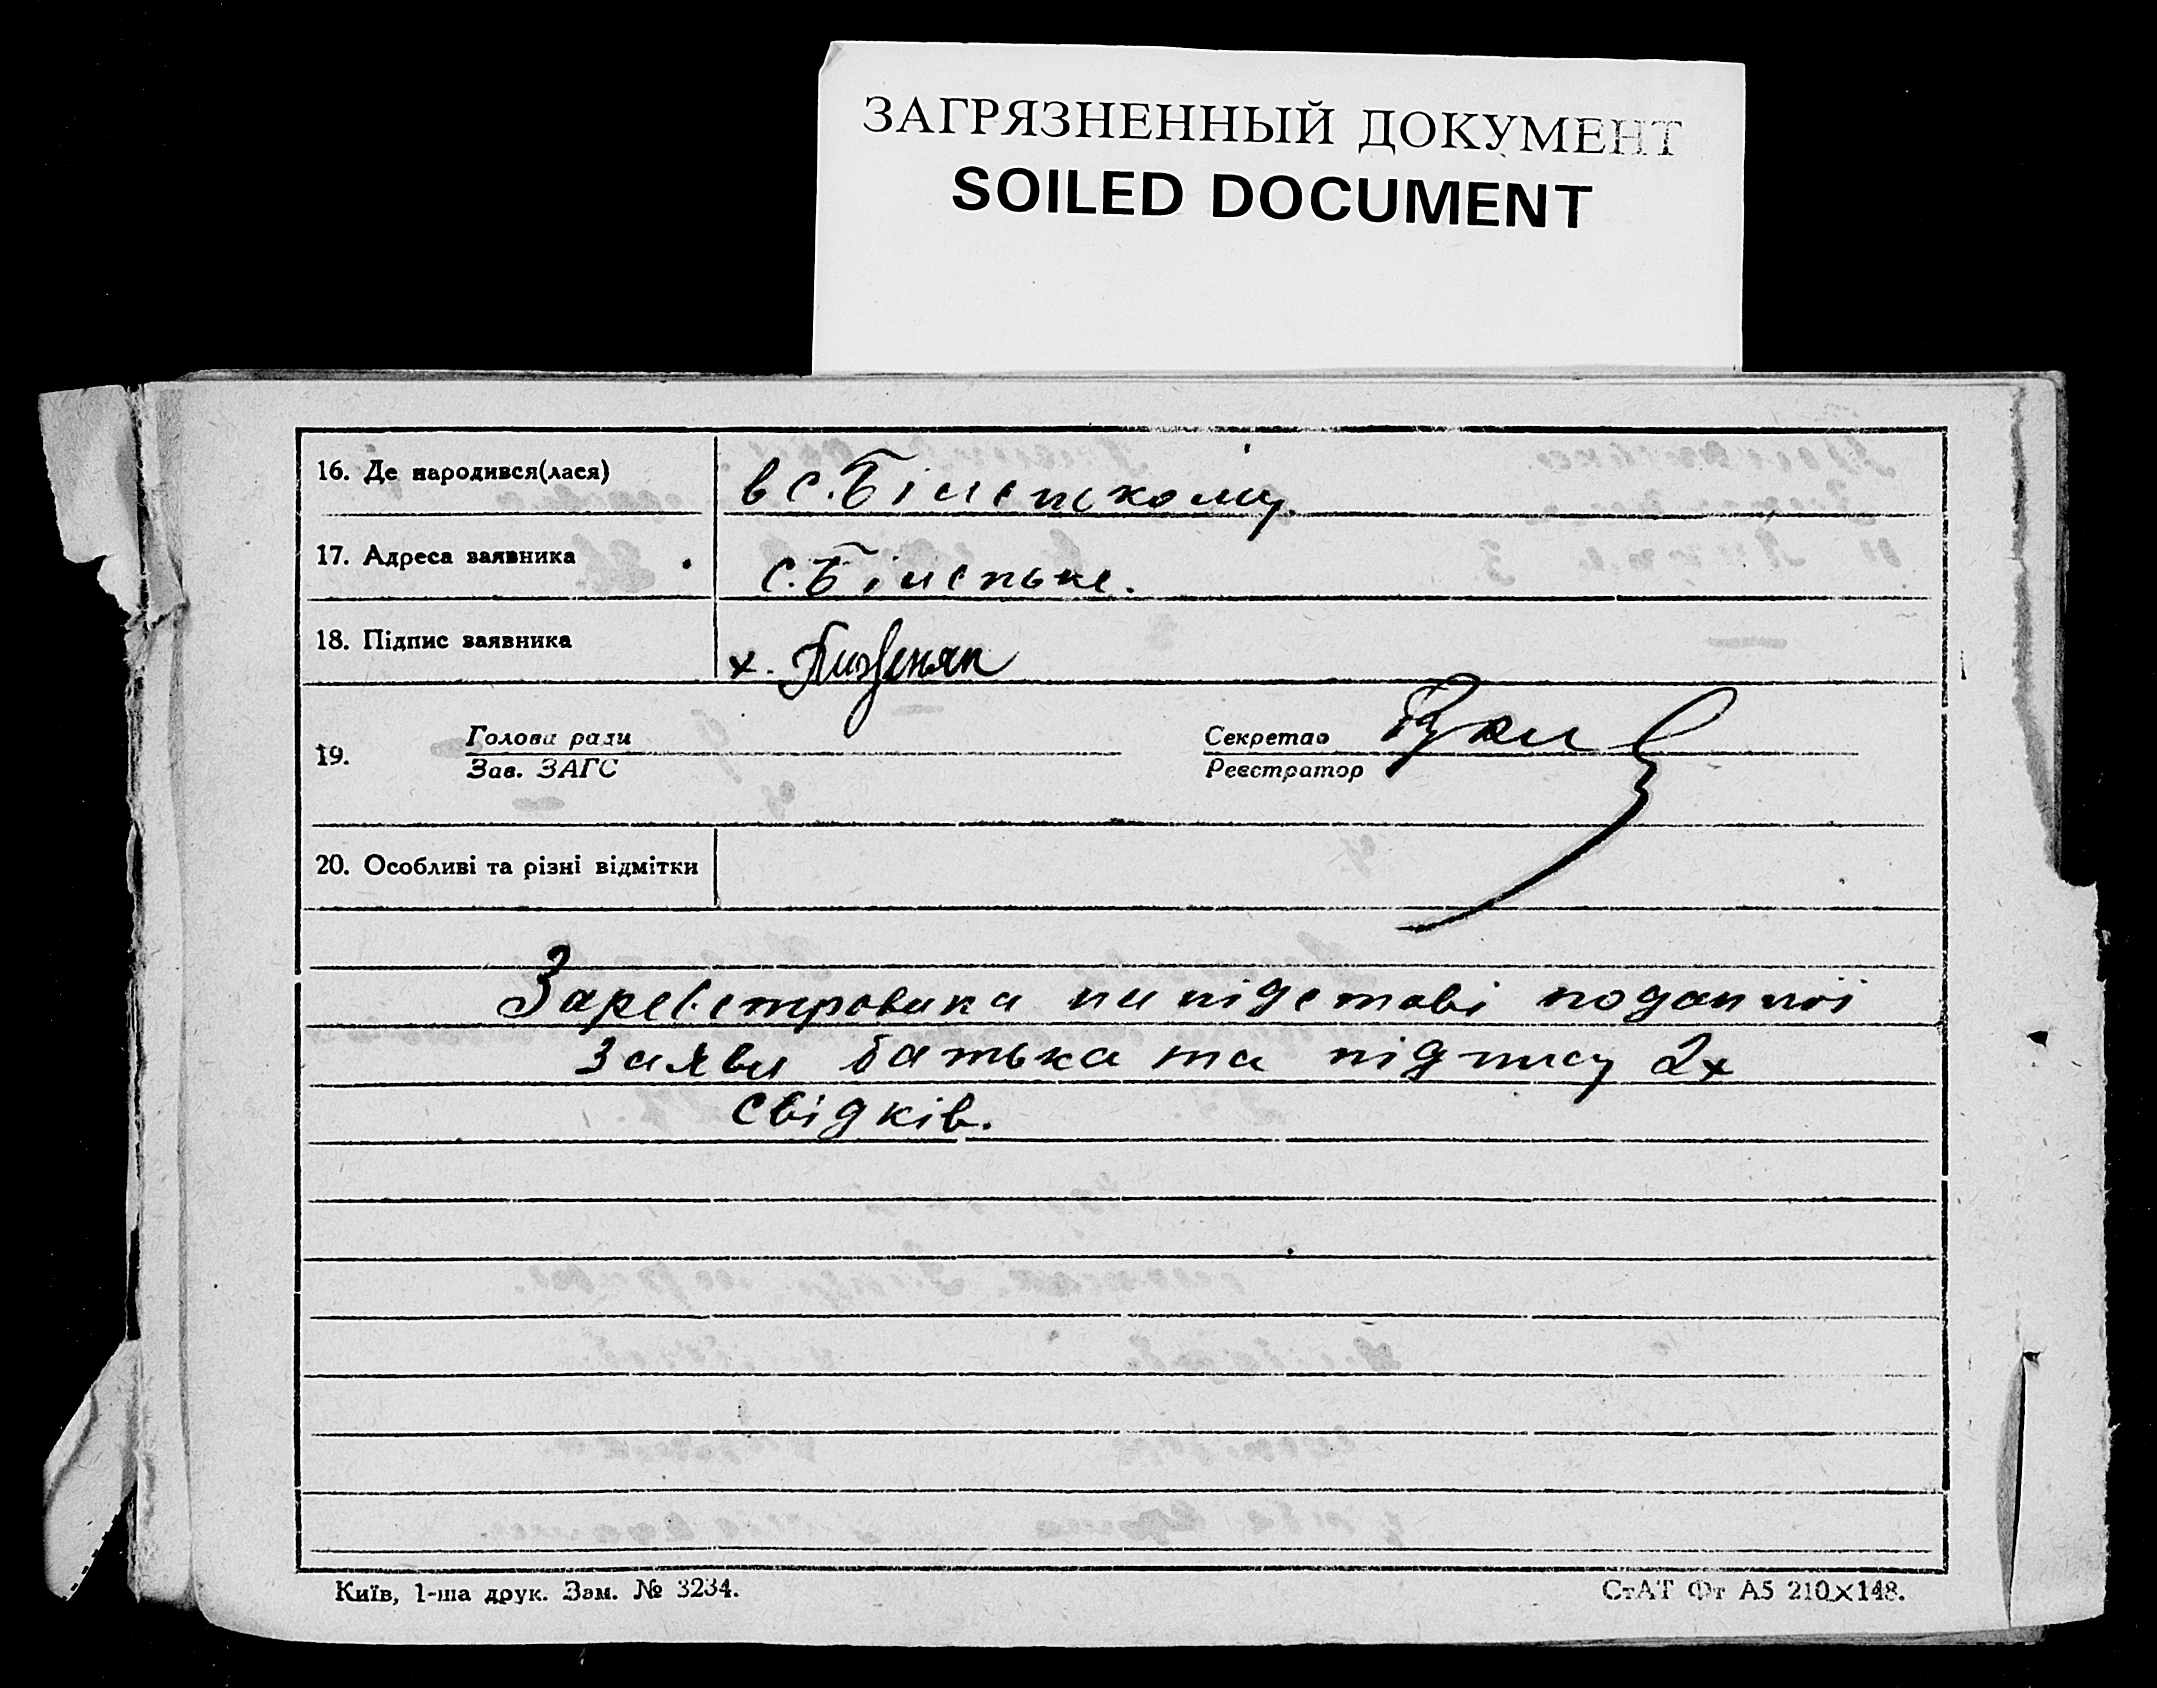 ЗАГРЯЗНЕННЫЙ ДОКУМЕНТ
SOILED DOCUMENT
16. Де народився(лася)
в с. Біленькому.
17. Адреса заявника
с. Біленьке.
18. Підпис заявника
х.
19.
Голова ради
Зав. ЗАГС
Секретар
Реєстратор
20. Особливі та різні відмітки
Зареєстровика на підставі поданої
заяви батька та підпису 2х
свідків.
Київ, 1-ша друк. Зам. № 3234.
СтАТ Фт А5 210×148.